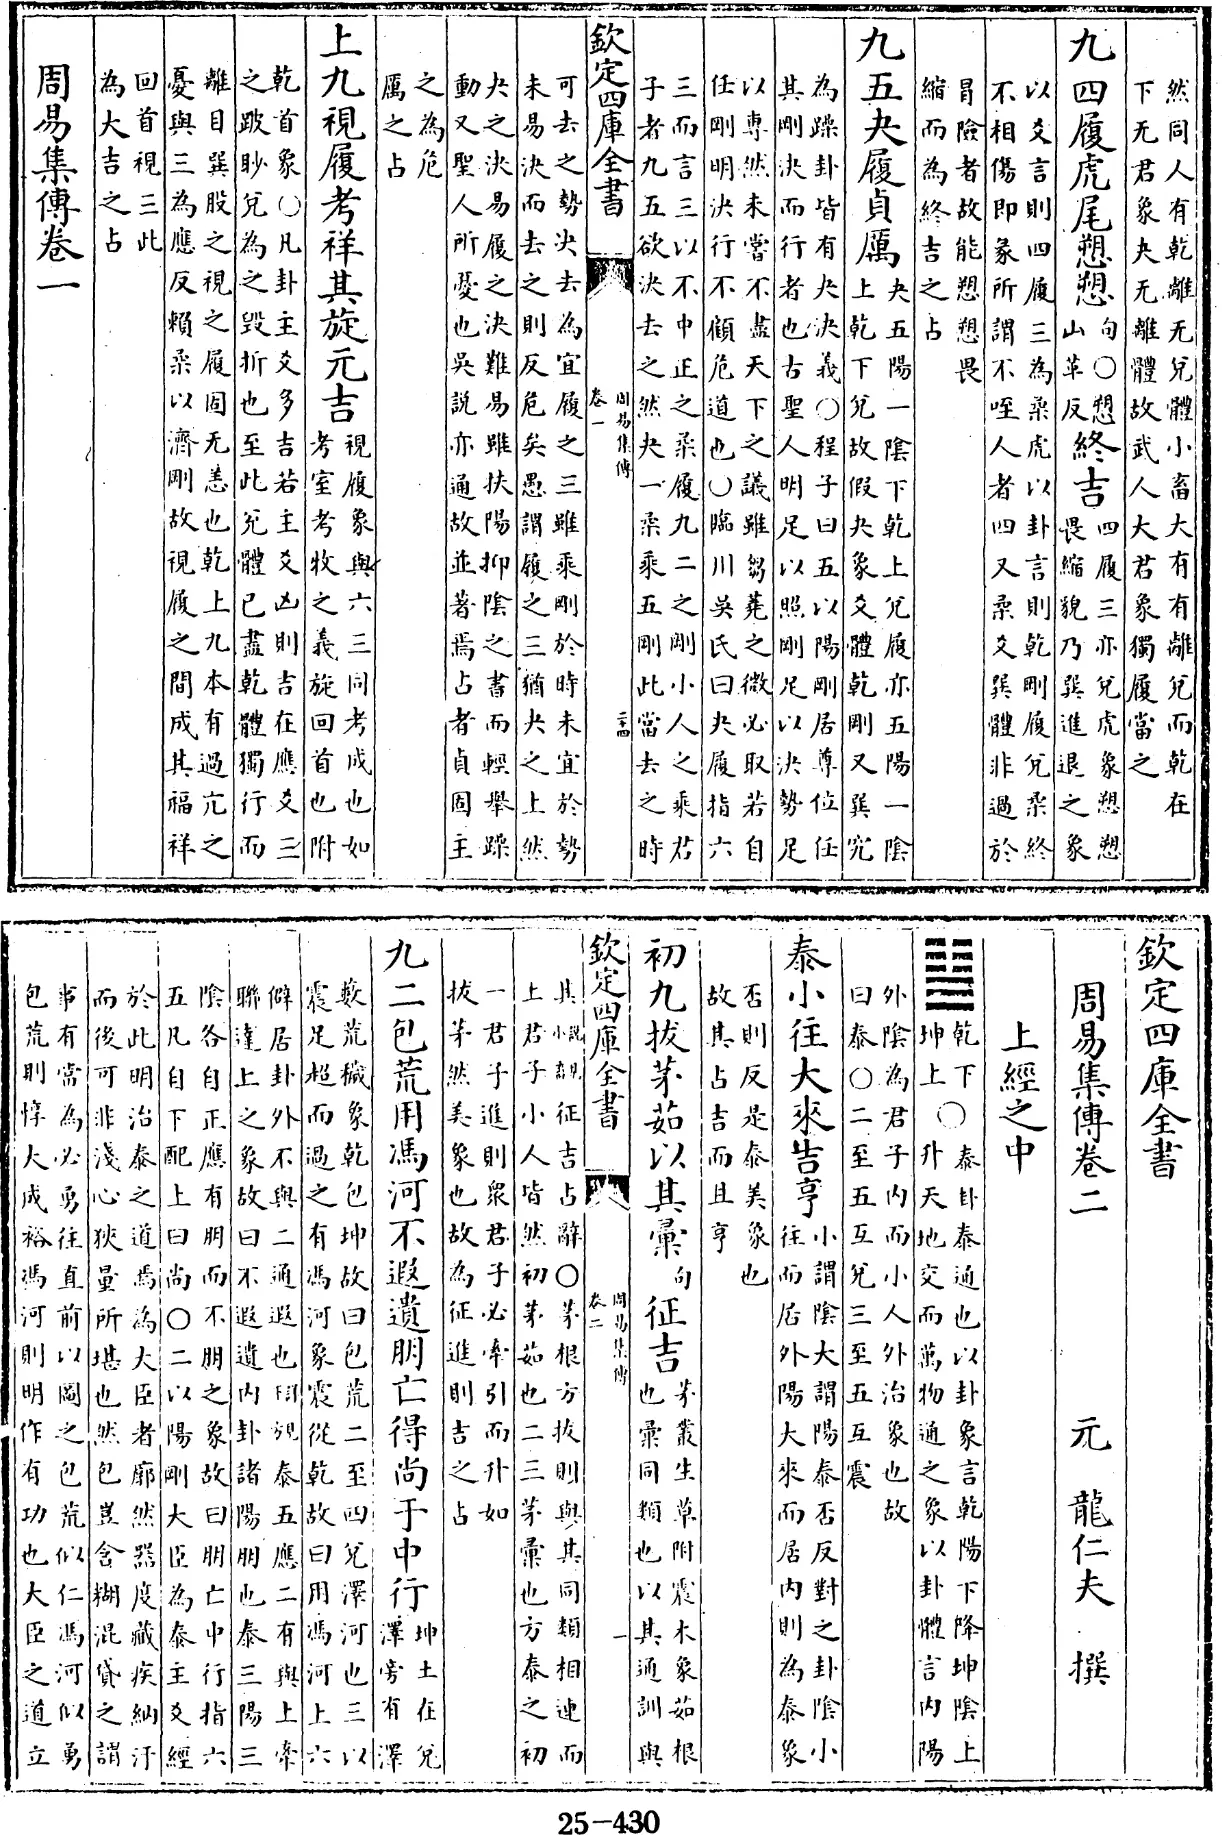 然同人有乾離无兌體小畜大有有離兌而乾在
下无君象夬无離體故武人大君象獨履當之
九四履虎尾愬愬
句○愬
山革反
終吉
四履三亦兌虎象愬愬
畏縮貌乃巽進退之象
以爻言則四履三為柔虎以卦言則乾剛履兌柔終
不相傷即彖所謂不咥人者四又柔爻巽體非過於
冒險者故能愬愬畏
縮而為終吉之占
九五夬履貞厲
夬五陽一陰下乾上兌履亦五陽一陰
上乾下兌故假夬象爻體乾剛又巽究
為躁卦皆有夬決義○程子曰五以陽剛居尊位任
其剛決而行者也古聖人明足以照剛足以決勢足
以專然未嘗不盡天下之議雖芻蕘之微必取若自
任剛明決行不顧危道也○臨川吳氏曰夬履指六
三而言三以不中正之柔履九二之剛小人之乘君
子者九五欲決去之然夬一柔乘五剛此當去之時
欽定四庫全書
周易集傳
卷一
二十四
可去之勢決去為宜履之三雖乘剛於時未宜於勢
未易決而去之則反危矣愚謂履之三猶夬之上然
夬之決易履之決難易雖扶陽抑陰之書而輕舉躁
動又聖人所憂也吳說亦通故並著焉占者貞固主
之為危
厲之占
上九視履考祥其旋元吉
視履象與六三同考成也如
考室考牧之義旋回首也附
乾首象○凡卦主爻多吉若主爻凶則吉在應爻三
之跛眇兌為之毀折也至此兌體已盡乾體獨行而
離目巽股之視之履固无恙也乾上九本有過亢之
憂與三為應反賴柔以濟剛故視履之間成其福祥
回首視三此
為大吉之占
周易集傳卷一
欽定四庫全書
周易集傳卷二 元 龍仁夫 撰
上經之中
乾下
坤上
○泰卦泰通也以卦象言乾陽下降坤陰上
升天地交而萬物通之象以卦體言內陽
外陰為君子內而小人外治象也故
曰泰○二至五互兌三至五互震
泰小往大來吉亨
小謂陰大謂陽泰否反對之卦陰小
往而居外陽大來而居內則為泰象
否則反是泰美象也
故其占吉而且亨
初九拔茅茹以其彙
句
征吉
茅叢生草附震木象茹根
也彙同類也以其通訓與
其小說訓征吉占辭○茅根方拔則與其同類相連而
上君子小人皆然初茅茹也二三茅彙也方泰之初
欽定四庫全書
周易集傳
卷二
一
一君子進則衆君子必牽引而升如
拔茅然美象也故為征進則吉之占
九二包荒用馮河不遐遺朋亡得尚于中行
坤土在兌
澤旁有澤
藪荒穢象乾包坤故曰包荒二至四兌澤河也三以
震足超而過之有馮河象震從乾故曰用馮河上六
僻居卦外不與二通遐也 泰五應二有與上牽
聯達上之象故曰不遐遺內卦諸陽朋也泰三陽三
陰各自正應有朋而不朋之象故曰朋亡中行指六
五凡自下配上曰尚○二以陽剛大臣為泰主爻經
於此明治泰之道焉為大臣者廓然器度藏疾納汙
而後可非淺心狹量所堪也然包豈含糊混貸之謂
事有當為必勇往直前以圖之包荒似仁馮河似勇
包荒則惇大成裕馮河則明作有功也大臣之道立
25-430